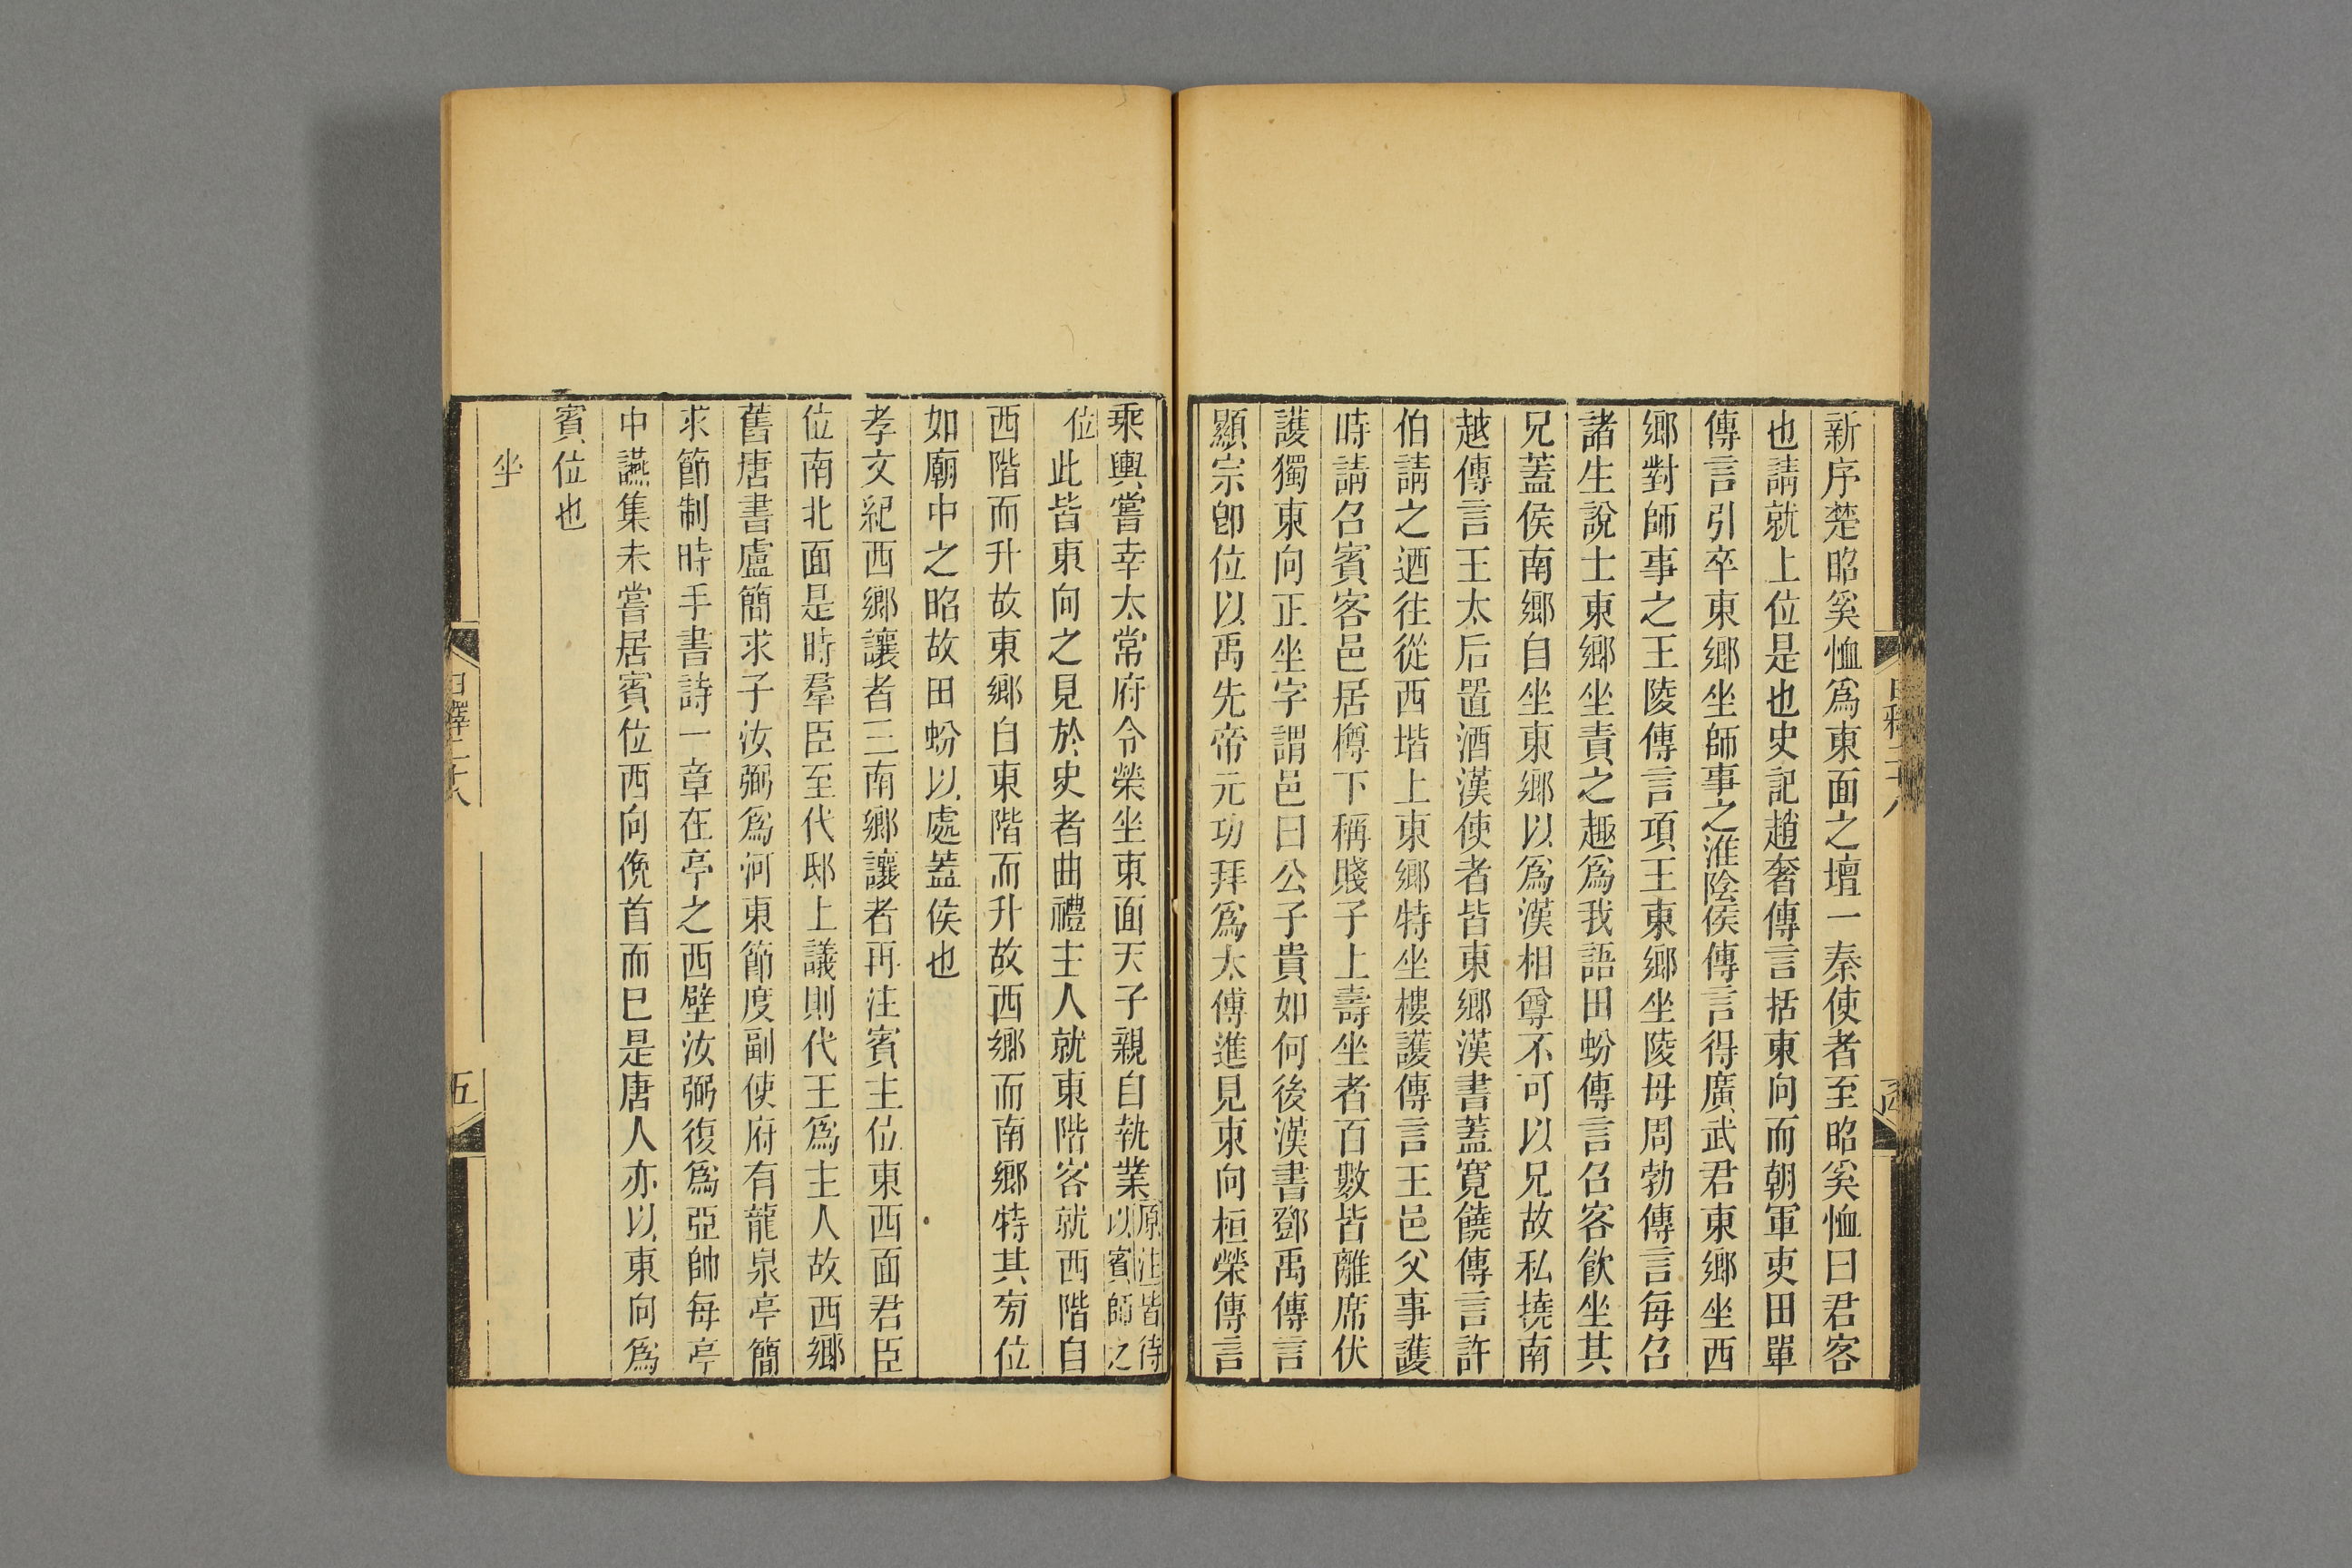 新序楚昭奚恤爲東面之壇一秦使者至昭奚恤曰君客
也請就上位是也史記趙奢傳言括東向而朝軍吏田單
傳言引卒東鄉坐師事之淮陰侯傳言得廣武君東鄉坐西
鄉對師事之王陵傳言項王東鄉坐陵母周勃傳言每召
諸生說士東鄉坐責之趣爲我語田蚡傳言召客飲坐其
兄蓋侯南鄉自坐東鄉以爲漢相尊不可以兄故私撓南
越傳言王太后置酒漢使者皆東鄉漢書蓋寬饒傳言許
伯請之迺往從西堦上東鄉特坐樓護傳言王邑父事護
時請召賓客邑居樽下稱賤子上壽坐者百數皆離席伏
護獨東向正坐字謂邑曰公子貴如何後漢書鄧禹傳言
顯宗卽位以禹先帝元功拜爲太傅進見東向桓榮傳言
乘輿嘗幸太常府令榮坐東面天子親自執業原注皆待以賓師之
位此皆東向之見於史者曲禮主人就東階客就西階自
西階而升故東鄉自東階而升故西鄉而南鄉特其旁位
如廟中之昭故田蚡以處蓋侯也
孝文紀西鄉讓者三南鄉讓者再注賓主位東西面君臣
位南北面是時羣臣至代邸上議則代王爲主人故西鄉
舊唐書盧簡求子汝弼爲河東節度副使府有龍泉亭簡
求節制時手書詩一章在亭之西壁汝弼復爲亞帥每亭
中讌集未嘗居賓位西向俛首而已是唐人亦以東向爲
賓位也
坐
日釋二十八
五